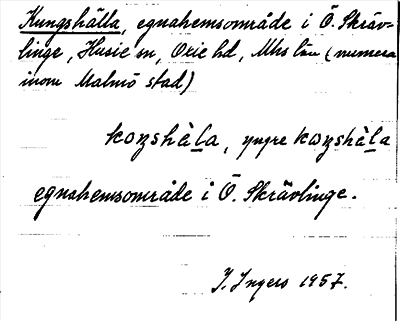 Kungshälla, egnahemsområde i Ö. Skräv-
linge, Husie sn, Oxie hd, Mhs län (numera
inom Malmö stad)
koŋshäla, yngre koŋshäla
egnahemsområde i Ö. Skrävlinge.
I. Ingers 1957.